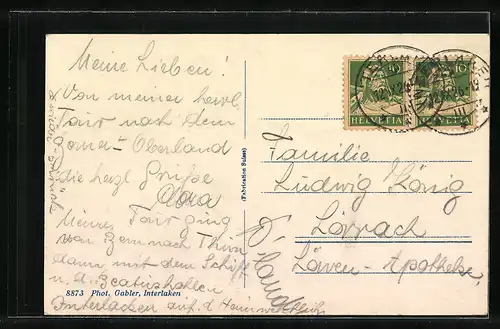 Meine Lieben!
Von meiner
Tour nach dem
Berner-Oberland
die herzl Grüße
Meine Tour ging
von Bern nach Thun
dann mit dem Schiff
n. d. Beatushöhlen
Interlaken auf d.
8873 Phot. Gabler, Interlaken
(Fabrication Suisse)
10 10
HELVETIA HELVETIA
Familie
Ludwig König
Lörrach
Löwen-Apotheke